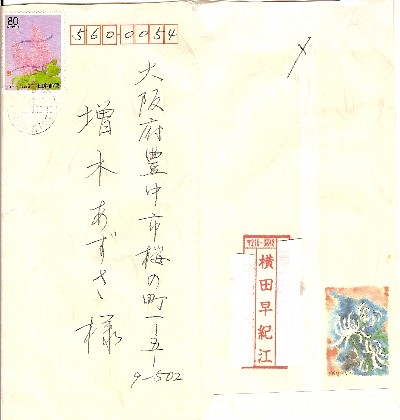 80
5600054
大阪府豊中市桜の町一-五-
9-502
増木あずさ様
〆
横田早紀江